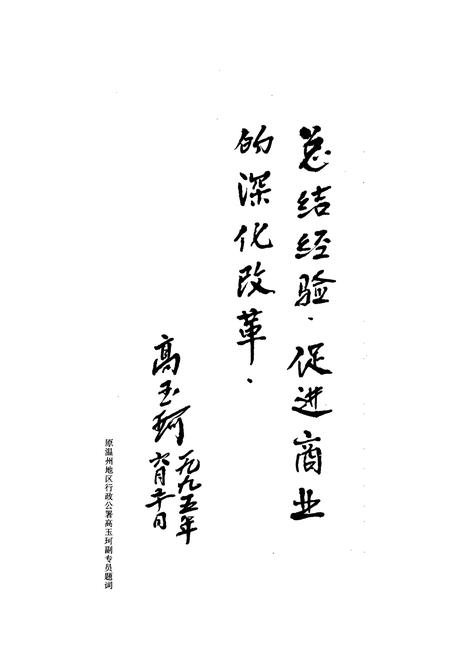 总结经验·促进商业
的深化改革·
高玉珂
一九九五年
六月廿日
原温州地区行政公署高玉珂副专员题词